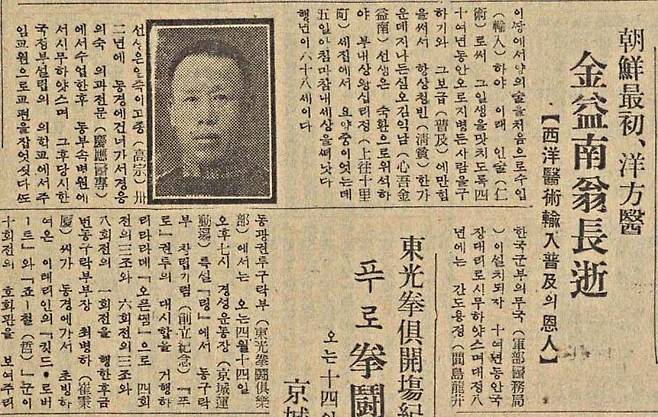 朝鮮最初、洋方醫
金益南翁長逝
【西洋醫術輸入普及의恩人】
이땅에서양의술을처음으로수입
(輸入)하야 이래 인술(仁
術)로써 그일생을맛치도록四
十여년동안오로지병든사람을구
하기와 그보급(普及)에만힘
을써서 항상청빈(淸貧)한가
운데지나든심오김익남(心吾金
益南)선생은 숙환으로위석하
야 부내상왕십리정(上往十里
町) 새집에서 요양중이엇는데
五일아츰마참내세상을떠낫다
행년이六十八세이다
선생은일즉이고종(高宗)卅
二년에 동경에건너가서경응
의숙 의과전문(慶應醫專)
에서수업한후 동부속병원에
서시무하얏스며 그후당시한
국정부설립의 의학교에서주
임교원으로교편을잡엇섯다또
한국군부의무국(軍部醫務局
)이설치되자 十여년동안국
장대리로시무하얏스며대정八
년에는 간도룡정(間島龍井
東光拳俱開場紀
푸로拳鬪
오는十四
京城
동광권투구락부(東光拳鬪俱樂
部)에서는 오는四월十四일
오후七시 경성운동장(京城運
動場) 특설「링」에서 동구락
부 창립기렴(創立紀念)「푸
로」권투의 대시합을 거행하
리라는데「오픈껨」으로 四회
전의三조와 六회전의三조와
八회전의 一회전을 행한후금
번동구락부부장 최병하(崔秉
廈)씨가 동경에가서 초빙하
여온 이태리인의「킷드·로버
ー트」와「죠ー철(哲)」군이
十회전의 호화판을 보여주리